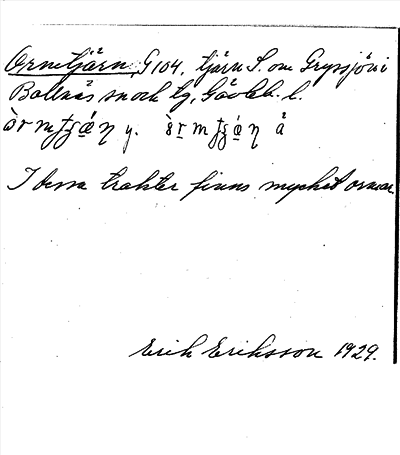 Ormtjärn, G104, tjärn S. om Gryssjön i
Bollnäs snock tg, Gävleb. l.
òrmʈʂǽη y. òrmʈʂǽη å
I dessa trakter finns mycket ormar.
Erik Eriksson 1929.